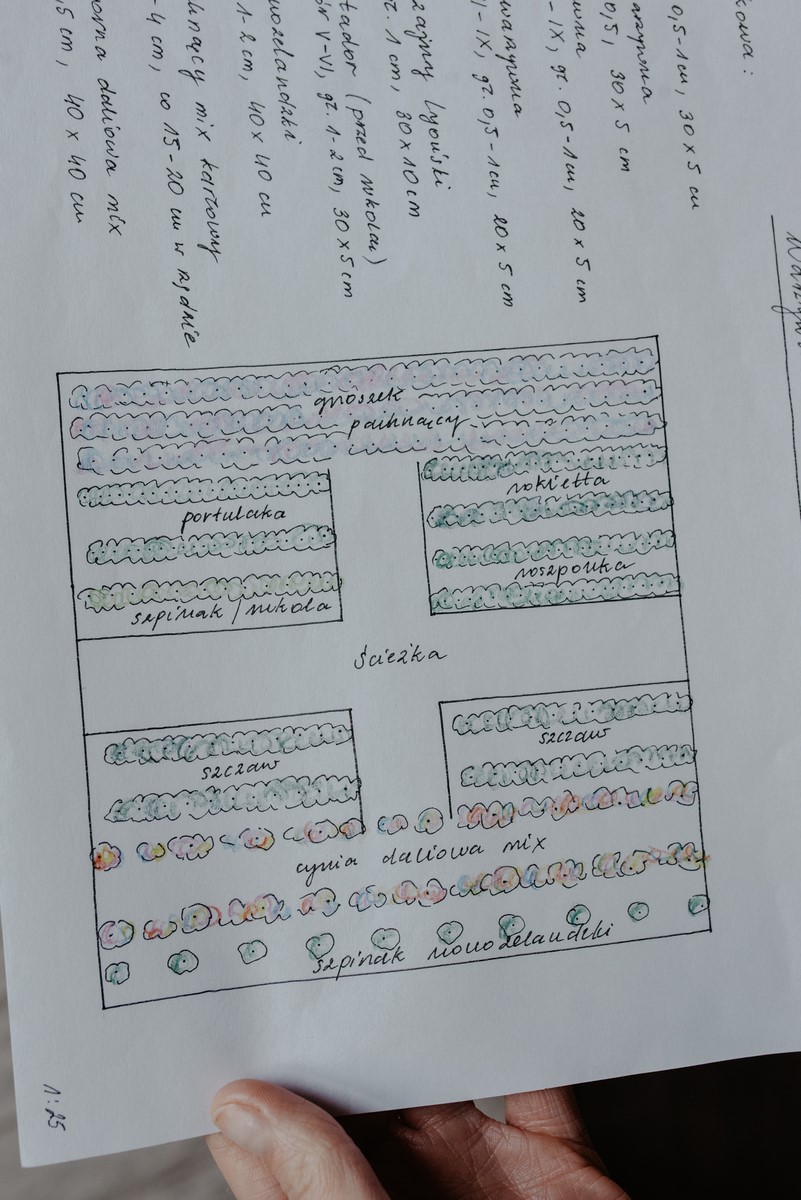 kowa:
0,5-1cm, 30 x 5 cm
0,5, 30 x 5 cm
- IX, gł. 0,5-1cm, 20 x 5 cm
warzywna
I - IX, gł. 0,5-1cm, 20 x 5 cm
zajny lyoński
gł. 1 cm, 30 x 10 cm
tador (przed rukolą)
ór V-VI, gł. 1-2 cm, 30 x 5 cm
1-2 cm, 40 x 40 cm
hnący mix karłowy
- 4 cm, co 15-20 cm w rzędzie
orna daliowa mix
,5 cm, 40 x 40 cm
groszek
pachnący
portulaka
rokietta
roszponka
szpinak / rukola
ścieżka
szczaw
szczaw
cynia daliowa mix
szpinak nowozelandzki
1:25